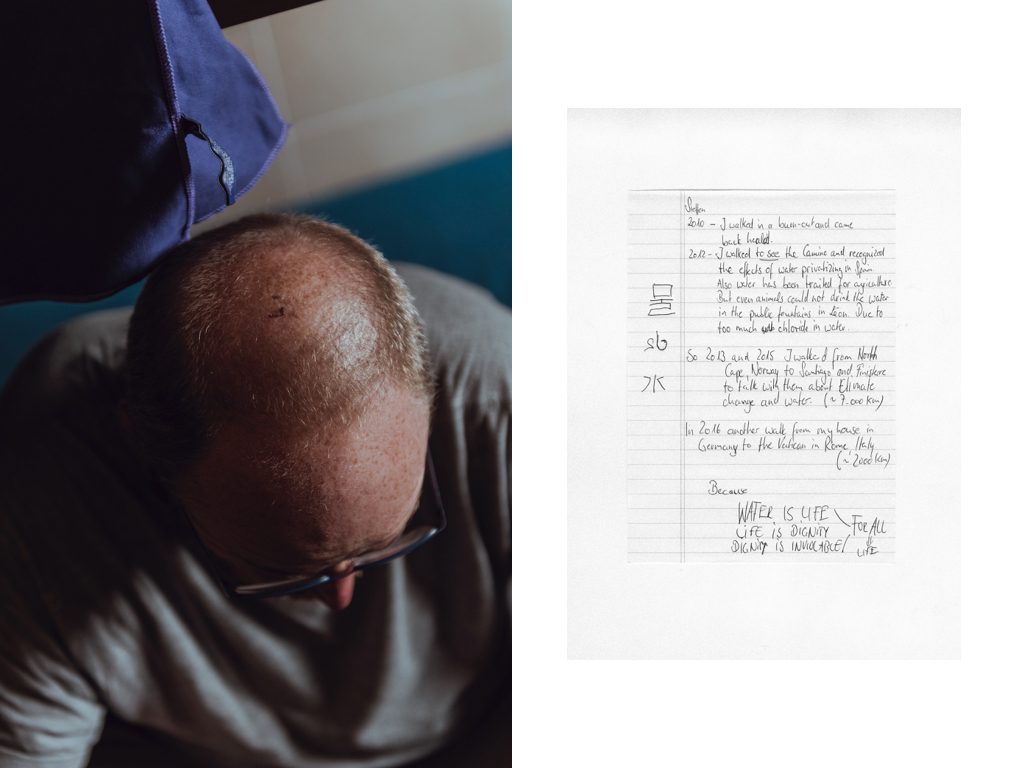 Steffen
2010 - I walked in a burn-out and came
back healed.
2012 - I walked to see the Camino and recognized
the effects of water privatizing in Spain
Also water has been traited for agriculture
But even animals could not drink the water
in the public fountains in Léon. Due to
too much chloride in water.
So 2013 and 2015 I walked from North
Cape, Norway to Santiago and Finistere
to talk with them about Climate
change and water. (~ 7.000 km)
In 2016 another walk from my house in
Germany to the Vatican in Rome, Italy
(~ 2000 km)
Because
WATER IS LIFE
LIFE IS DIGNITY
DIGNITY IS INVIOLABLE
FOR ALL
LIFE